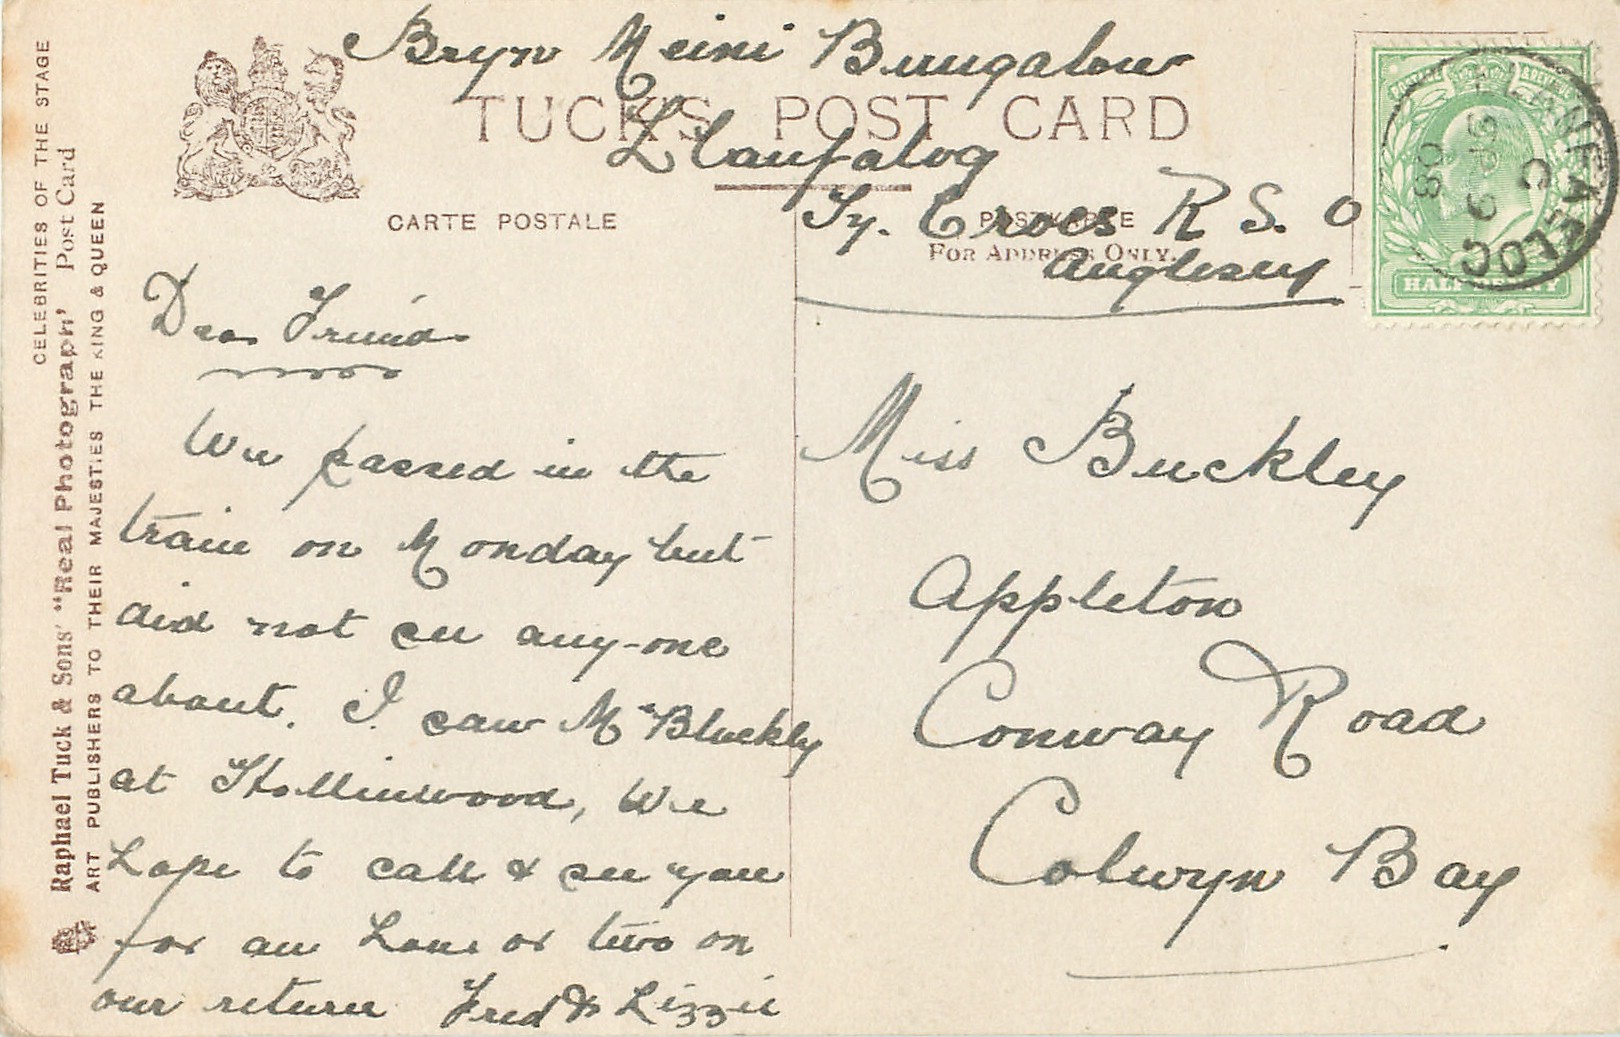 Bryn Meini Bungalow
TUCK'S POST CARD
Llanfalog
Ty. Croes R S. O
Anglesey
CARTE POSTALE
FOR ADDRESS ONLY.
HALFPENNY
POSTAGE & REVENUE
LLANFAELOG
C
SP 9
08
Dear Friend
We passed in the
train on Monday but
did not see any-one
about. I saw Mr Bluckly
at Hollinwood, We
hope to call & see you
for an hour or two on
our return Fred & Lizzie
Miss Buckley
Appleton
Conway Road
Colwyn Bay
CELEBRITIES OF THE STAGE
Raphael Tuck & Sons' "Real Photograph' Post Card
ART PUBLISHERS TO THEIR MAJESTIES THE KING & QUEEN